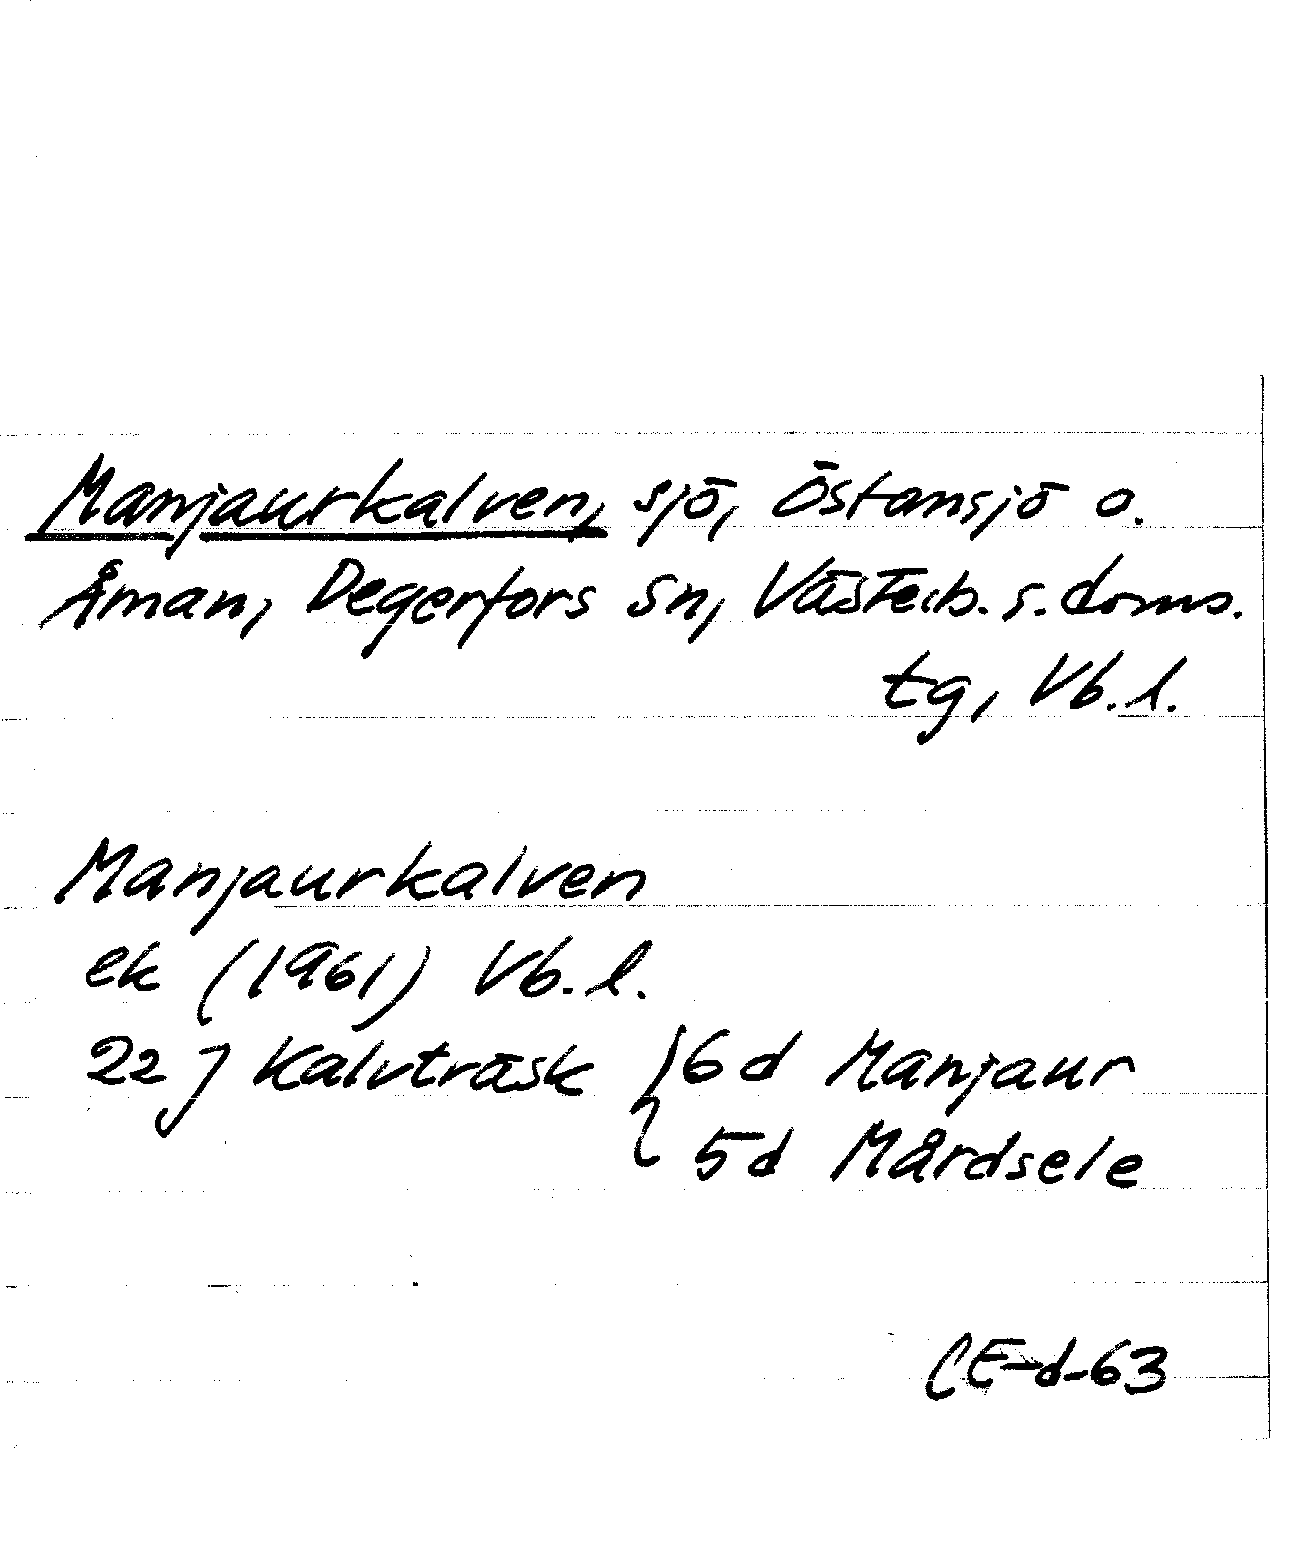 Manjaurkalven, sjö, Östansjö o.
Åman, Degerfors sn, Västerb. s. doms.
tg, Vb. l.
Manjaurkalven
ek (1961) Vb. l.
22 J Kalvträsk { 6d Manjaur
5d Mårdsele
CE-d-63